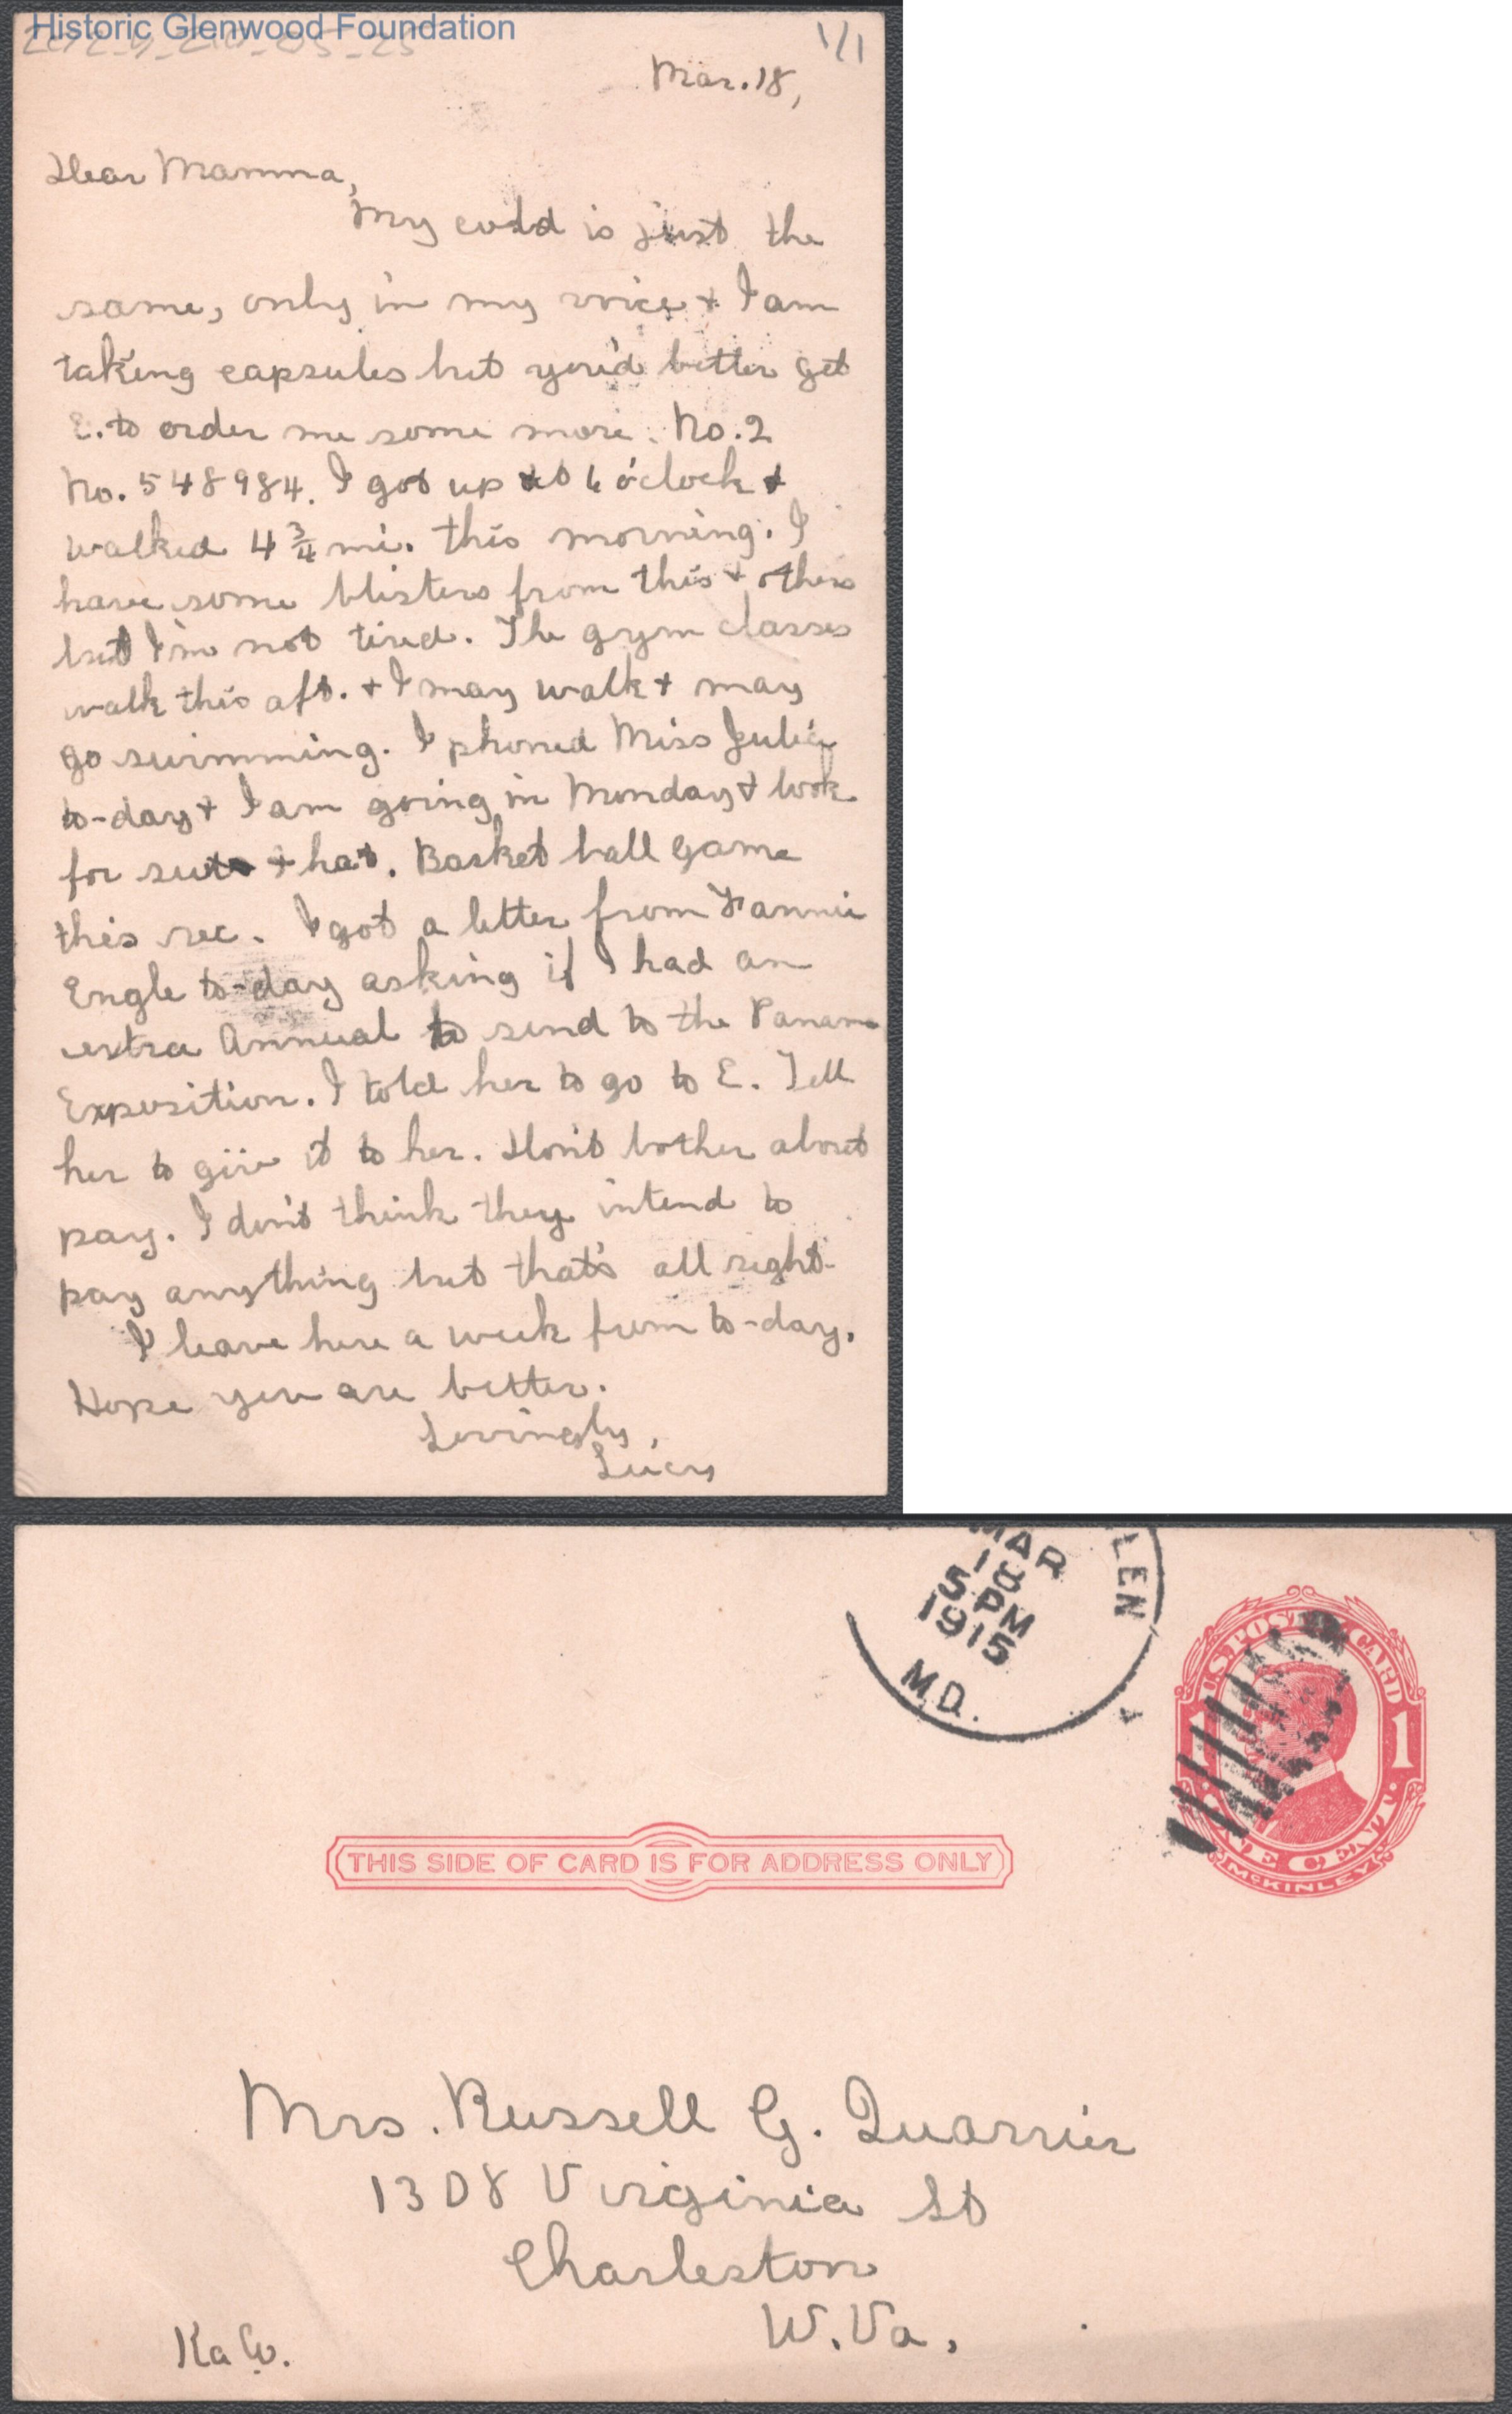 Historic Glenwood Foundation
1/1
Mar. 18,
Dear Mamma,
My cold is just the
same, only in my voice + I am
taking capsules but you'd better get
E. to order me some more. No. 2
No. 548984. I got up at 6 o'clock +
walked 4 3/4 mi. this morning. I
have some blisters from this + others
but I'm not tired. The gym classes
walk this aft. + I may walk + may
go swimming. I phoned Miss Julia
to-day + I am going in Monday + look
for suit + hat. Basket ball game
this rec. I got a letter from Fannie
Engle to-day asking if I had an
extra Annual to send to the Panama
Exposition. I told her to go to E. Tell
her to give it to her. Don't bother about
pay. I don't think they intend to
pay anything but that's all right.
I leave here a week from to-day.
Hope you are better.
Lovingly,
Lucy
LEN
MAR
18
5 PM
1915
MD.
U.S. POSTAL CARD
1 1
ONE CENT
McKINLEY
THIS SIDE OF CARD IS FOR ADDRESS ONLY
Mrs. Russell G. Quarrier
1308 Virginia St
Charleston
W. Va.